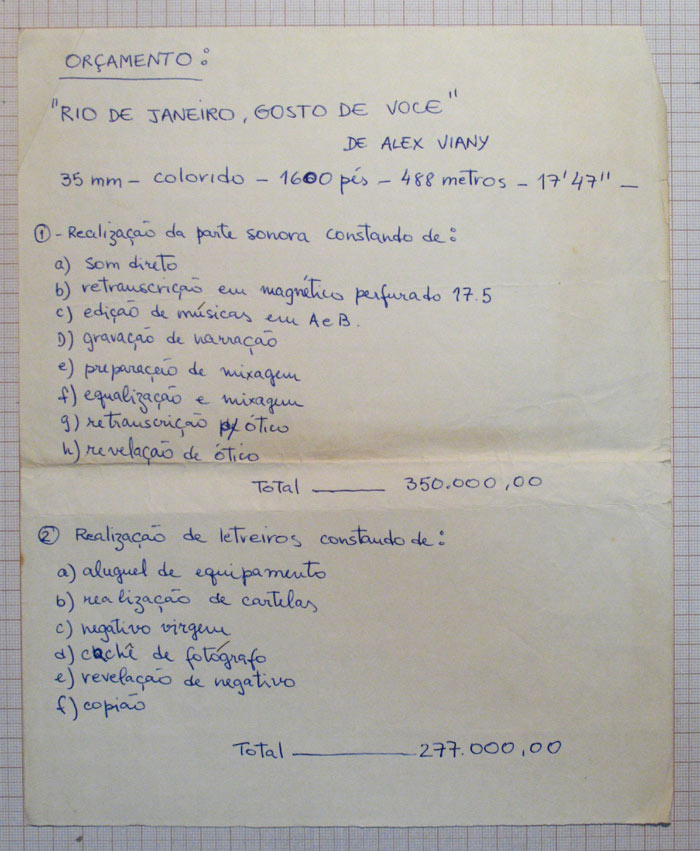 ORÇAMENTO:
"RIO DE JANEIRO, GOSTO DE VOCE"
DE ALEX VIANY
35 mm - colorido - 1600 pés - 488 metros - 17'47" -
① - Realização da parte sonora constando de:
a) som direto
b) retranscrição em magnético perfurado 17.5
c) edição de músicas em A e B.
D) gravação de narração
e) preparação de mixagem
f) equalização e mixagem
g) retranscrição p/ ótico
h) revelação de ótico
Total ——— 350.000,00
② Realização de letreiros constando de:
a) aluguel de equipamento
b) realização de cartelas
c) negativo virgem
d) cachê de fotógrafo
e) revelação de negativo
f) copião
Total ——— 277.000,00